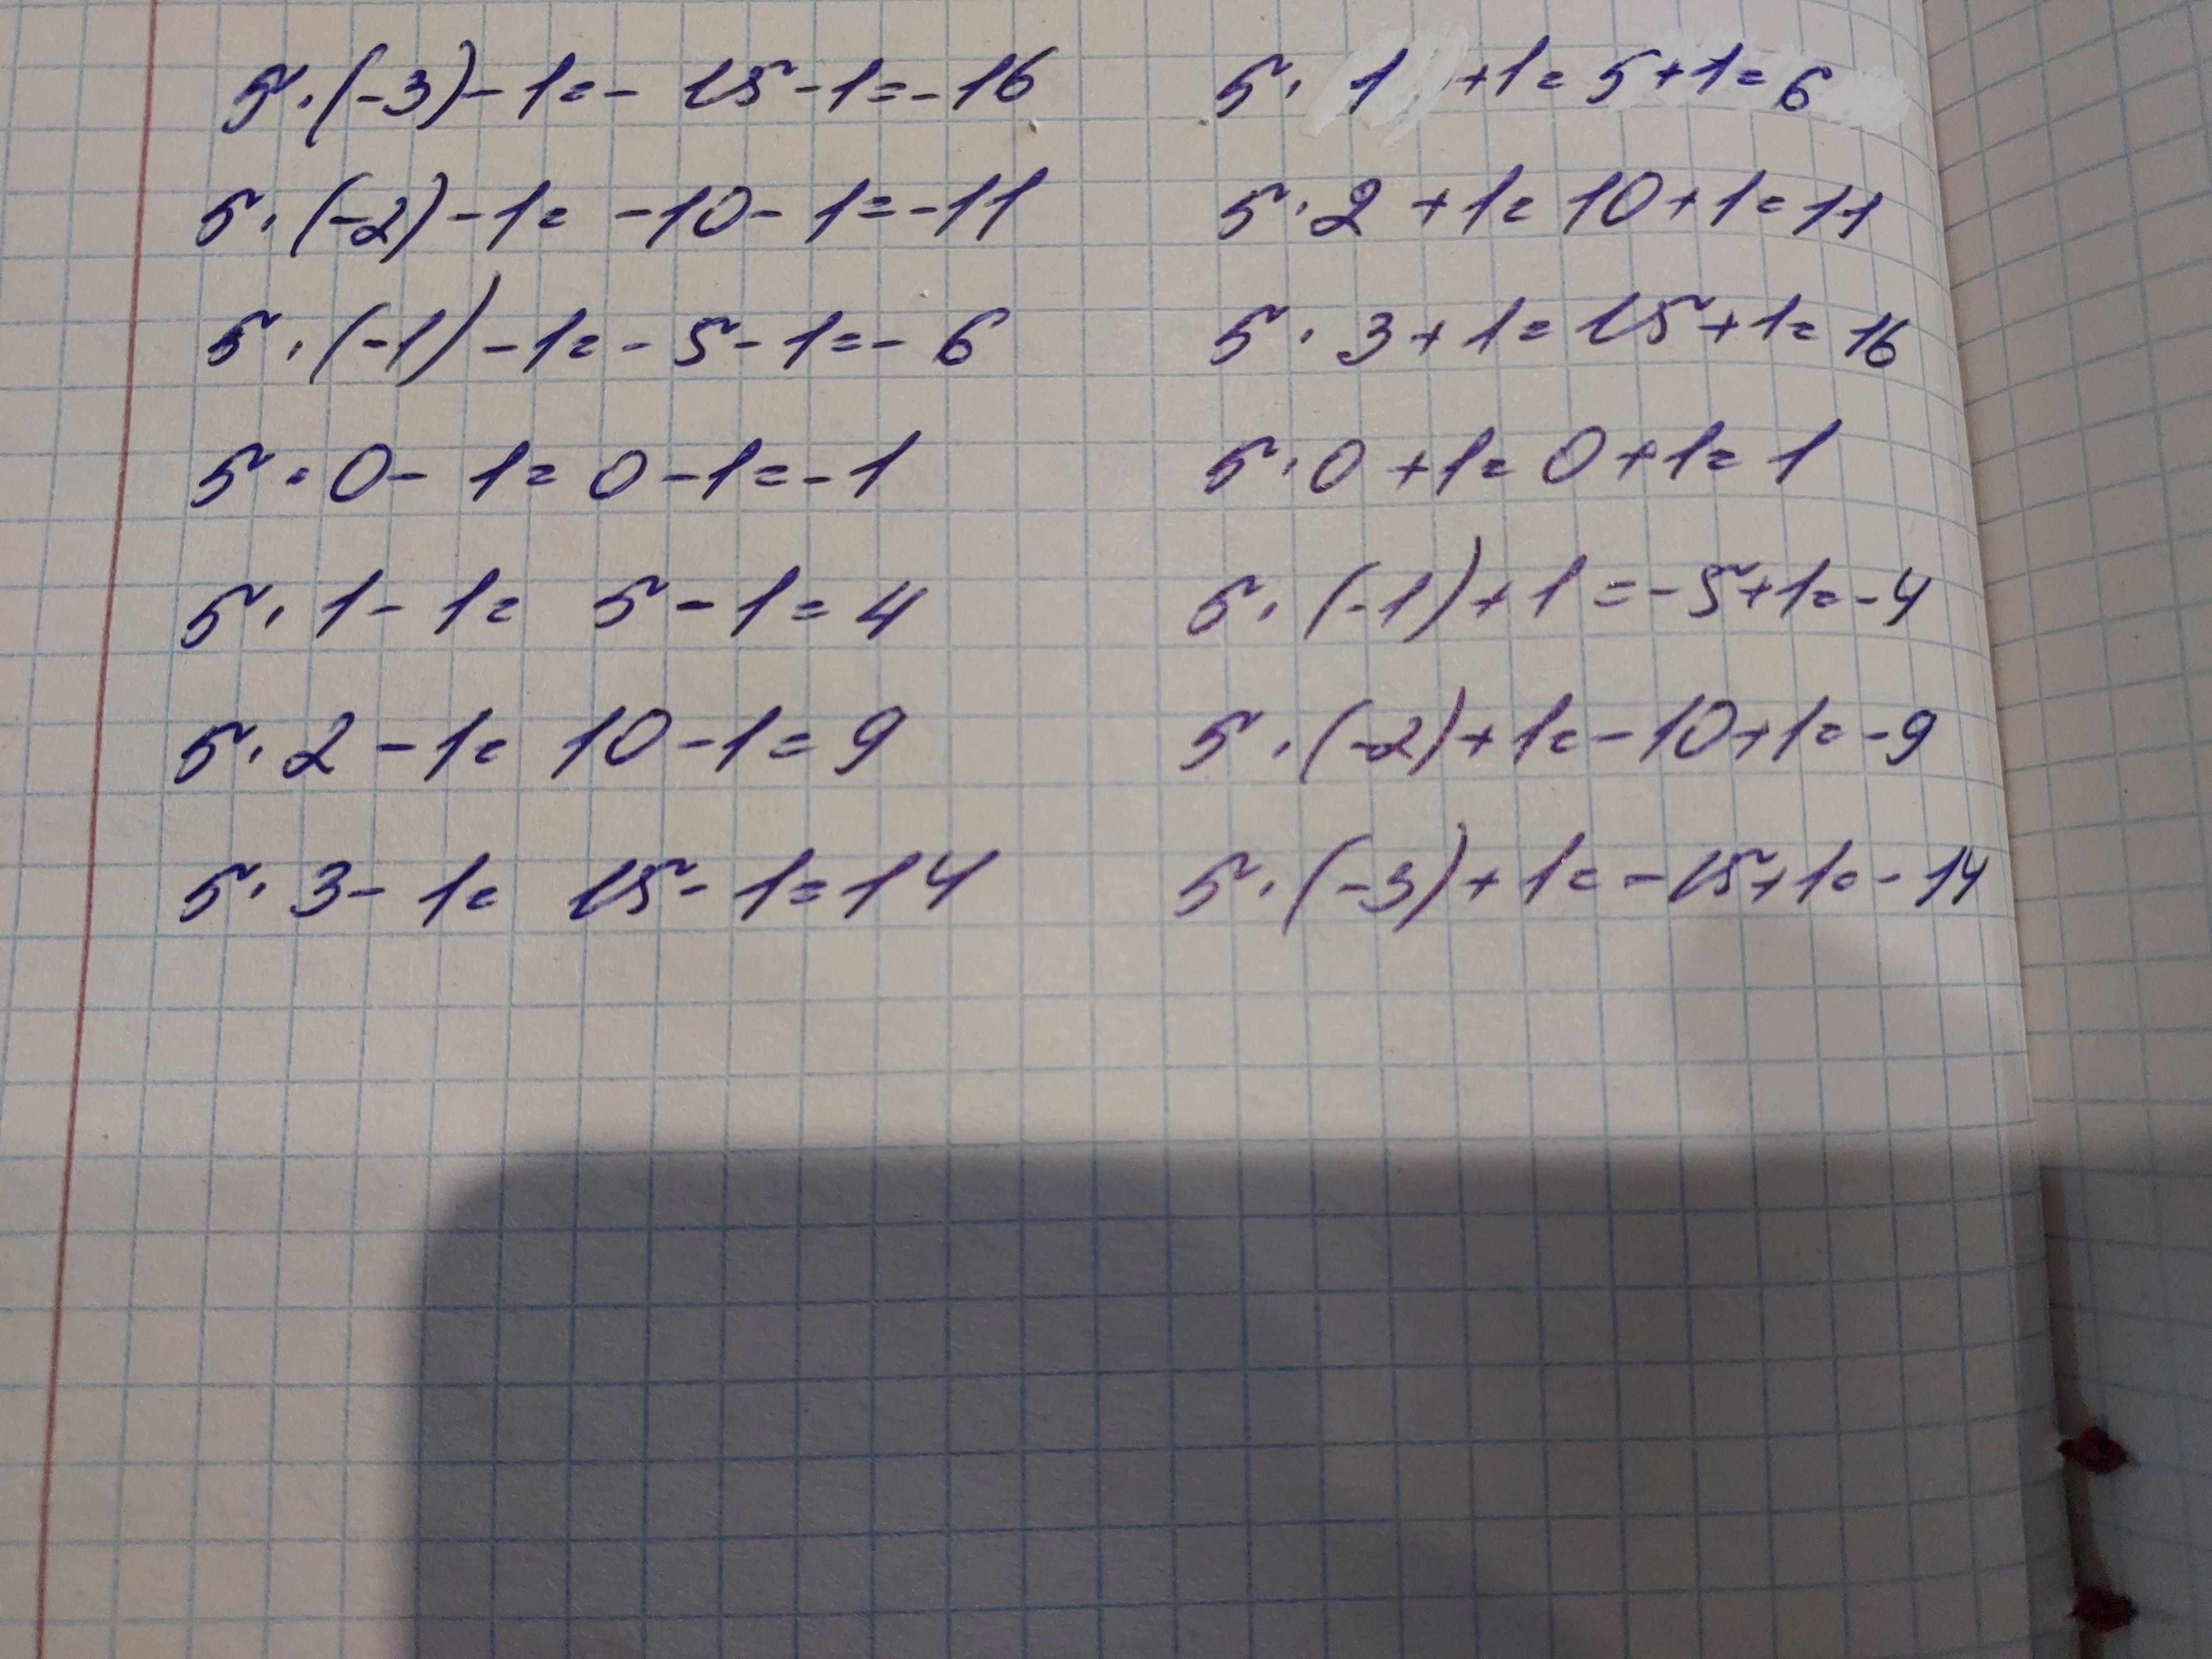 5·(-3)-1=-15-1=-16
5·(-2)-1=-10-1=-11
5·(-1)-1=-5-1=-6
5·0-1=0-1=-1
5·1-1=5-1=4
5·2-1=10-1=9
5·3-1=15-1=14
5·1+1=5+1=6
5·2+1=10+1=11
5·3+1=15+1=16
5·0+1=0+1=1
5·(-1)+1=-5+1=-4
5·(-2)+1=-10+1=-9
5·(-3)+1=-15+1=-14